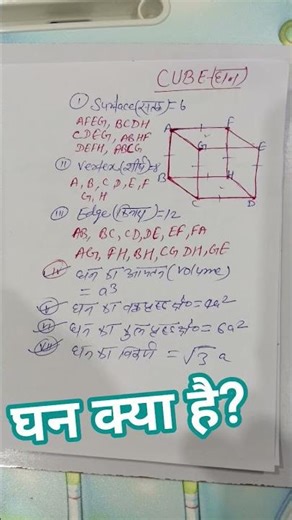 CUBE-(घन)
A F
G E
B H
C D
(I) Surface(सतह)=6
AFEG, BCDH
CDEG, ABHF
DEFH, ABCG
(II) Vertex(शीर्ष)=8
A, B, C, D, E, F
G, H
(III) Edge(किनारा)=12
AB, BC, CD, DE, EF, FA
AG, FH, BH, CG DH, GE
घन का आयतन(volume)
= a3
घन का वक्रपृष्ठ क्षे० = 4a2
घन का कुल पृष्ठ क्षे० = 6a2
घन का विकर्ण = √3 a
घन क्या है?